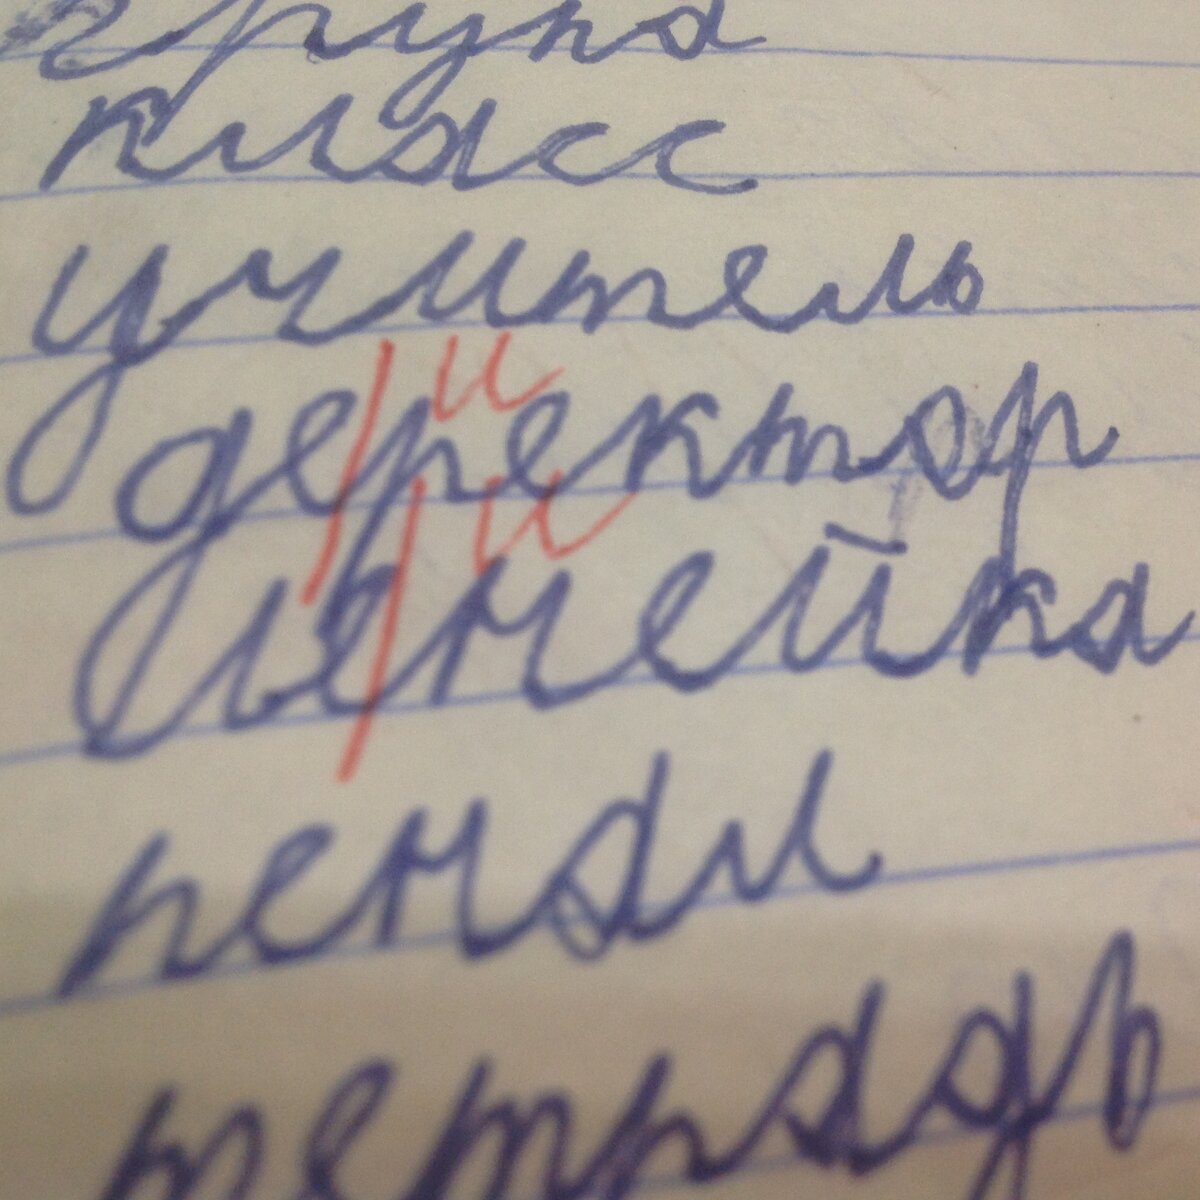 група
класс
учитель
и
деректор
и
ленейка
пенал
тетрадь